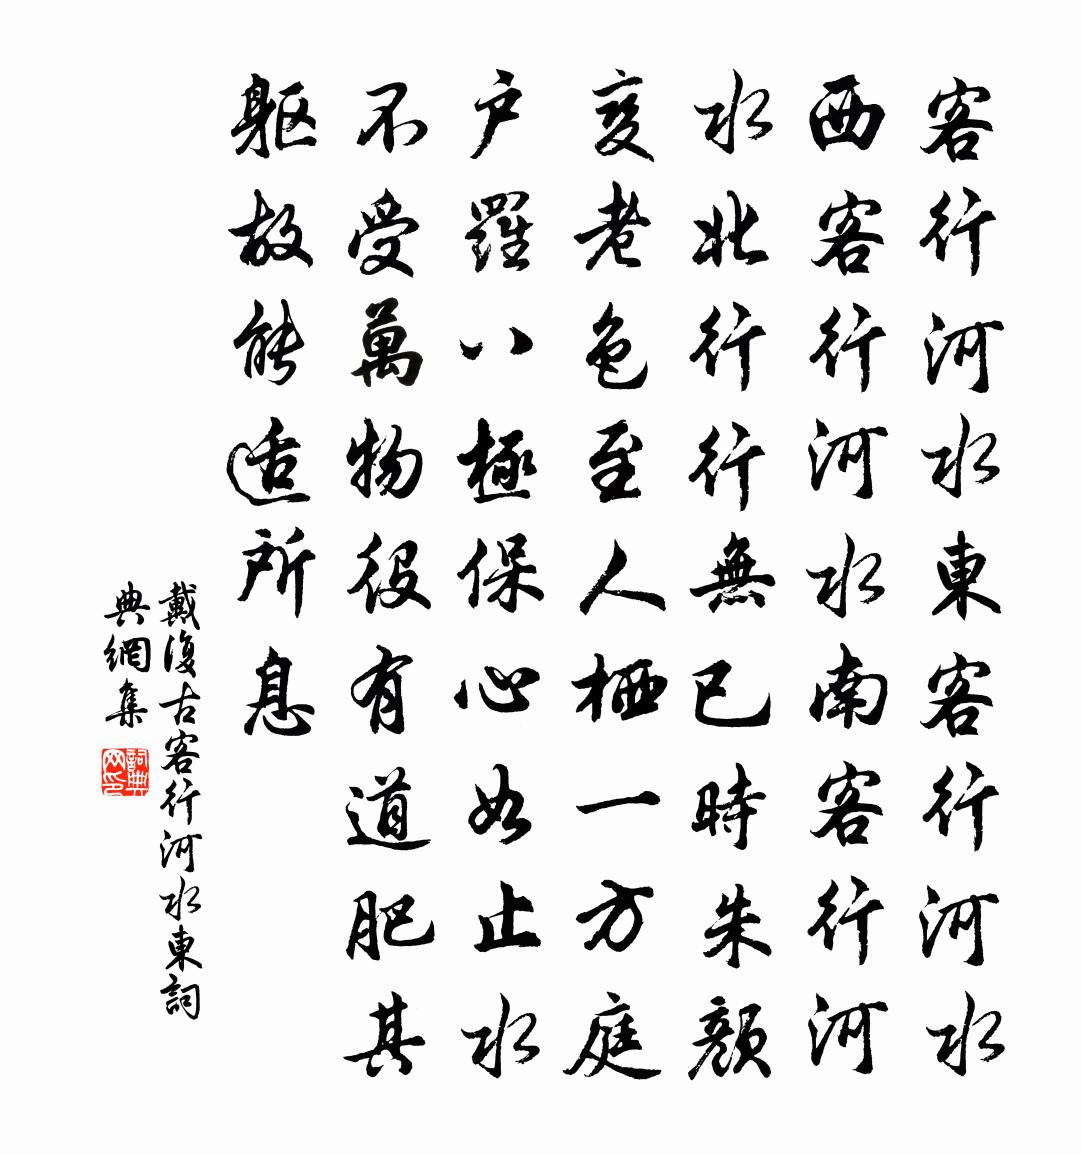 客行河水東客行河水
西客行河水南客行河
水北行行無已時朱顏
變老色至人栖一方庭
户羅八極保心如止水
不受萬物役有道肥其
軀故能適所息
戴復古客行河水東詞
典網集
詞典
网印